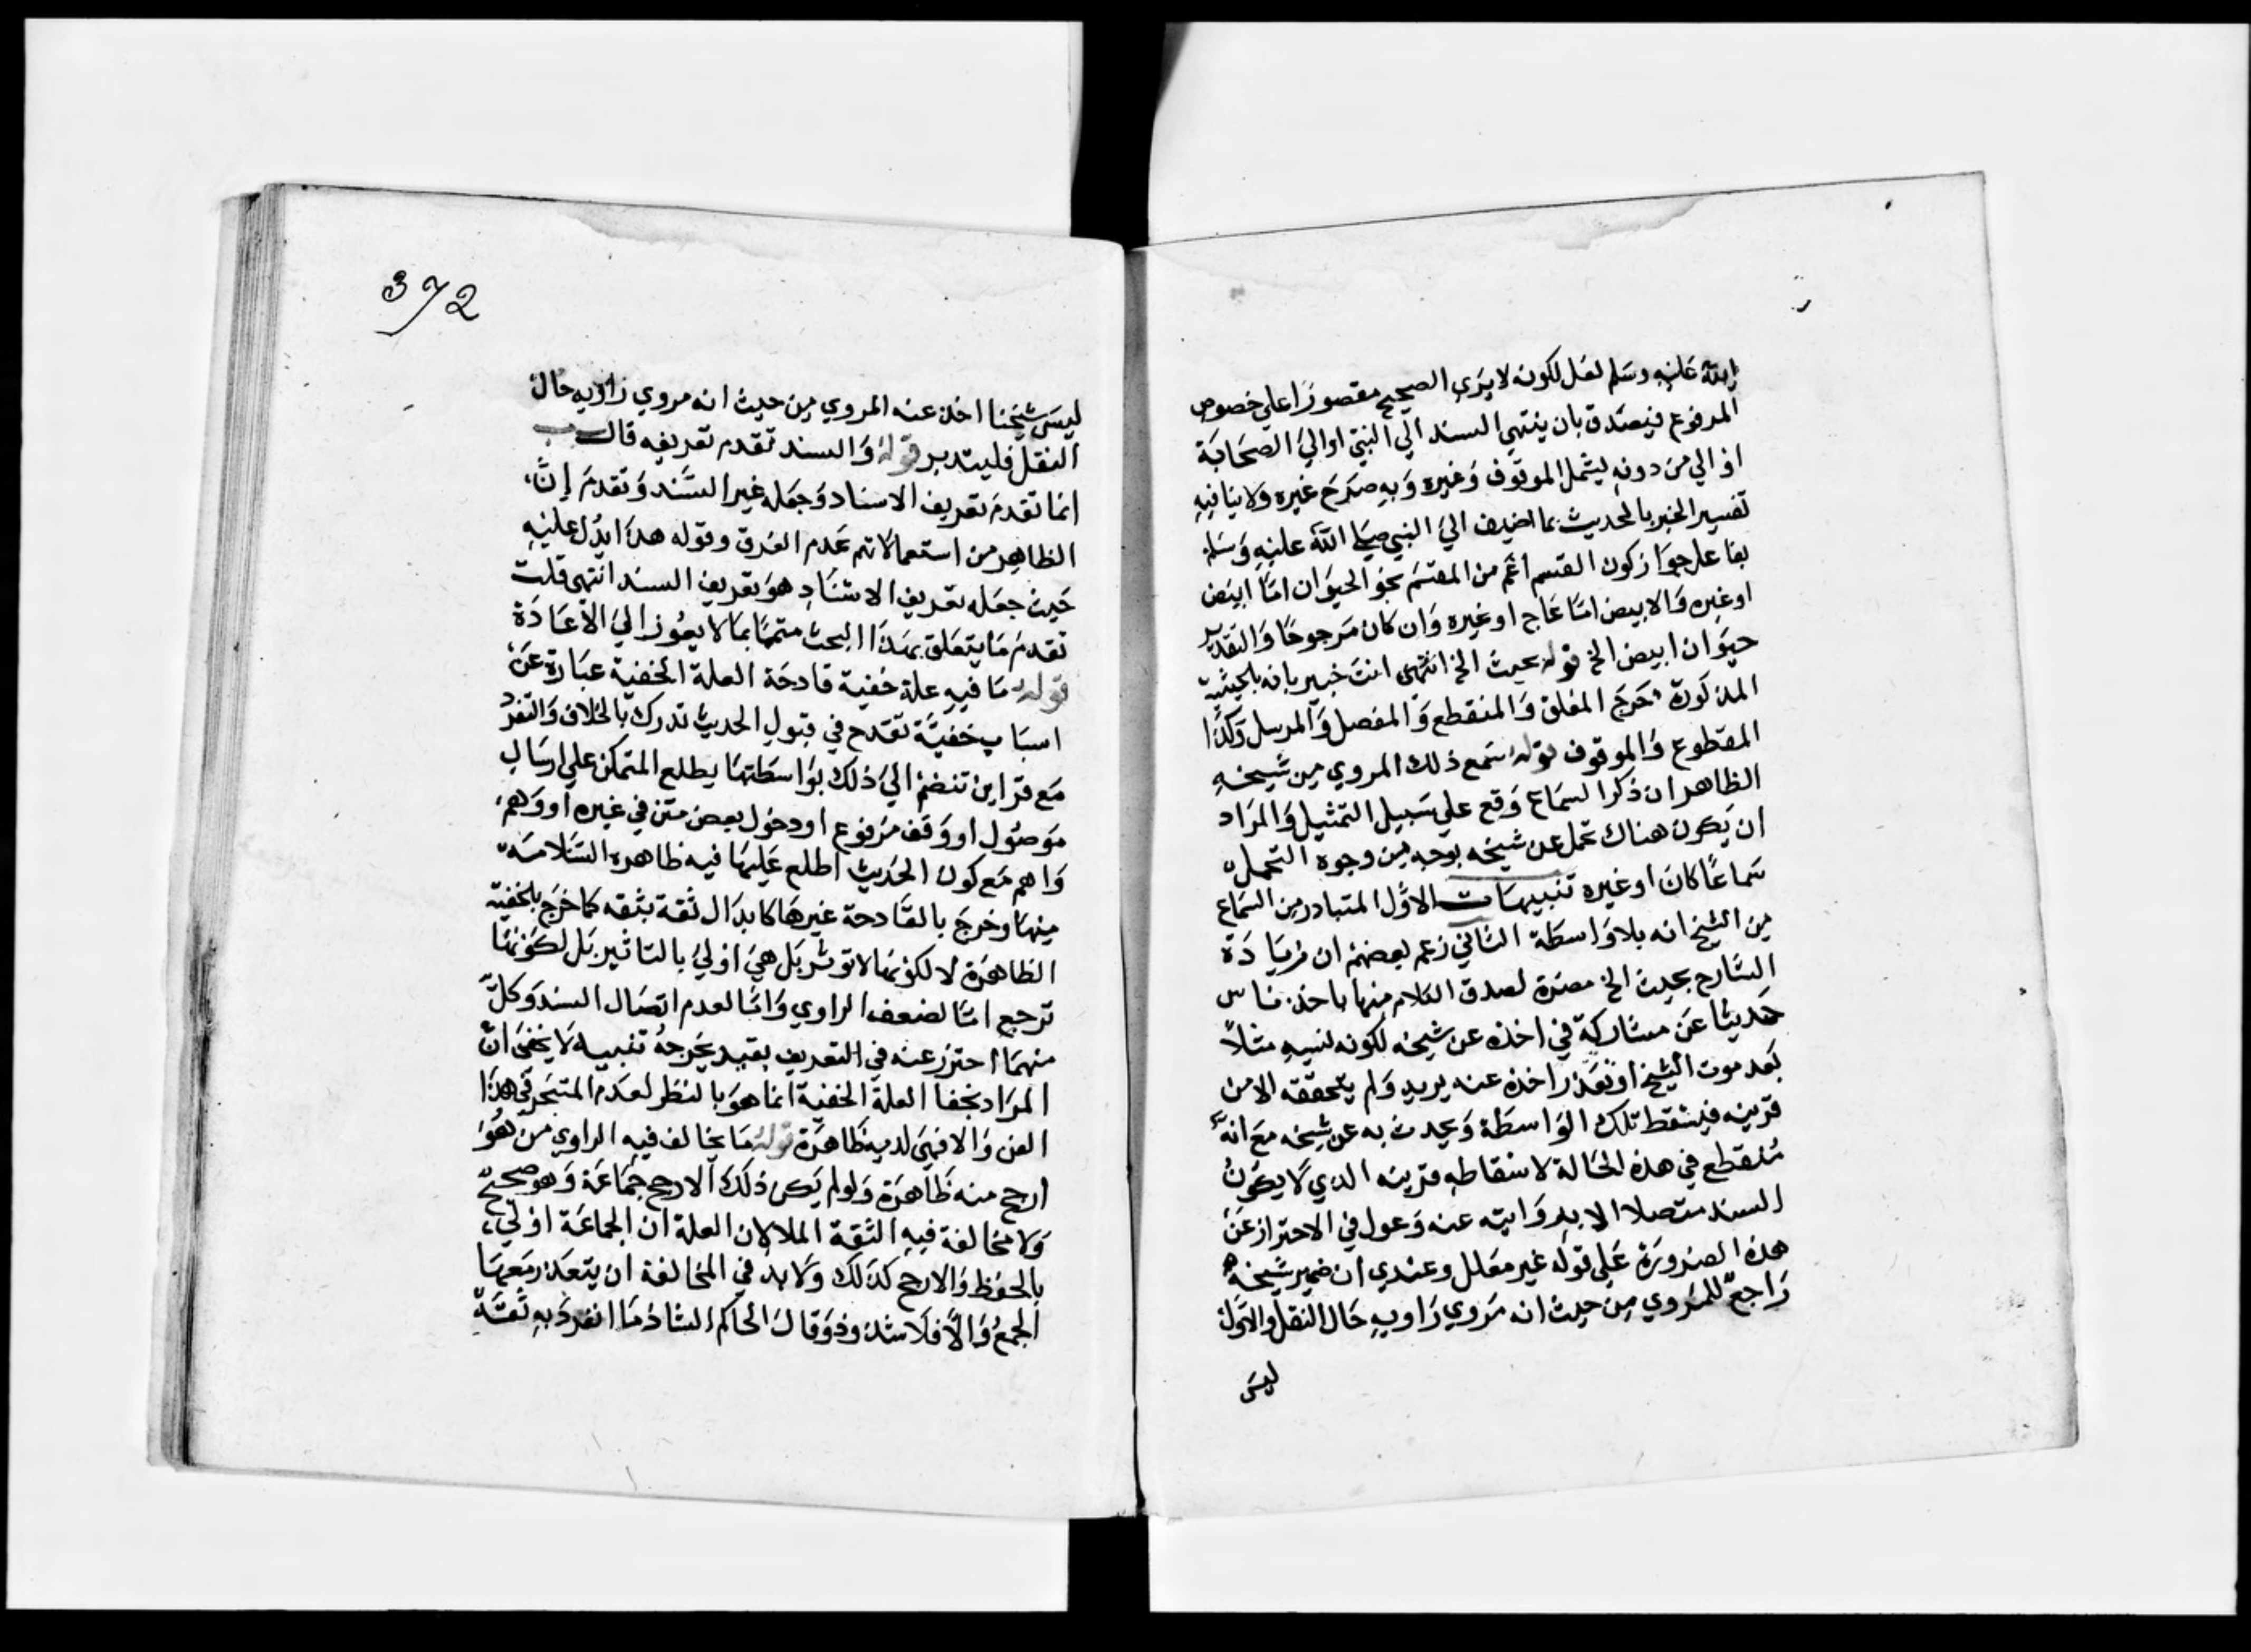 الله عليه وسلم لعل لكونه لا يرى الصحيح مقصورا علي خصوص
المرفوع فيصدق بان ينتهي السند الي النبي او الي الصحابة
او الي من دونه ليشمل الموقوف وغيره وبه صرح غيره ولا ينافيه
تفسير الخبر بالحديث بما اضيف الي النبي صلى الله عليه وسلم
بنا على جواز كون القسم اعم من المقسم نحو الحيوان اما ابيض
او غيره والابيض اما عاج او غيره وان كان مرجوحا والتقدير
حيوان ابيض الخ قوله بحيث الخ انتهى انت خبير بانه بالحيثية
المذكورة خرج المعلق والمنقطع والمعضل والمرسل وكذا
المقطوع والموقوف قوله سمع ذلك المروي من شيخه
الظاهر ان ذكر السماع وقع علي سبيل التمثيل والمراد
ان يكون هناك تحمل عن شيخه بوجه من وجوه التحمل
سماعا كان او غيره تنبيهات الاول المتبادر من السماع
من الشيخ انه بلا واسطة الثاني زعم بعضهم ان زيادة
الشارح بحيث الخ مضرة لصدق الكلام منها باخذ ناس
حديثا عن مشاركة في اخذه عن شيخه لكونه نسيه مثلا
بعد موت الشيخ او تعذر اخذه عنه يريد ولم يتحققه الا من
قرينه فيسقط تلك الواسطة ويحدث به عن شيخه مع انه
منقطع في هذه الحالة لاسقاطه قرينه الذي لا يكون
السند متصلا الا بروايته عنه وعول في الاحتراز عن
هذه الصورة علي قوله غير معلل وعندي ان ضمير شيخه
راجع للمروي من حيث انه مروي راويه حال النقل والاول
ليس
372
ليس شيخنا اخذ عنه المروي من حيث انه مروي راويه حال
النقل فليتدبر قوله والسند تقدم تعريفه قال
انما تقدم تعريف الاسناد وجعله غير السند وتقدم ان
الظاهر من استعمالاتهم عدم الفرق وقوله هذا يدل عليه
حيث جعله تعريف الاسناد هو تعريف السند انتهى قلت
تقدم ما يتعلق بهذا البحث متمما بما لا يعوز الي الاعادة
قوله ما فيه علة خفية قادحة العلة الخفية عبارة عن
اسباب خفية تقدح في قبول الحديث تدرك بالخلاف والتفرد
مع قراين تنضم الي ذلك بواسطتها يطلع المتمكن علي ارسال
موصول او وقف مرفوع او دخول بعض متن في غيره او وهم
واهم مع كون الحديث اطلع عليها فيه ظاهره السلامة
منها وخرج بالقادحة غيرها كابدال ثقة بثقه كما خرج بالخفية
الظاهرة لا لكونها لا توثر بل هي اولي بالتاثير بل لكونها
ترجع اما لضعف الراوي واما لعدم اتصال السند وكل
منهما احترز عنه في التعريف بقيد يخرجه تنبيه لا يخفى ان
المراد بخفا العلة الخفية انما هو بالنظر لعدم المتبحر في هذا
الفن والا فهي لديه ظاهرة قوله ما يخالف فيه الراوي من هو
ارجح منه ظاهرة ولو لم يكن ذلك الارجح جماعة وهو صحيح
ولا مخالفة فيه الثقة الملا لان العلة ان الجماعة اولي
بالحفظ والارجح كذلك ولا بد في المخالفة ان يتعذر معها
الجمع والا فلا شذوذ وقال الحاكم الشاذ ما انفرد به ثقة